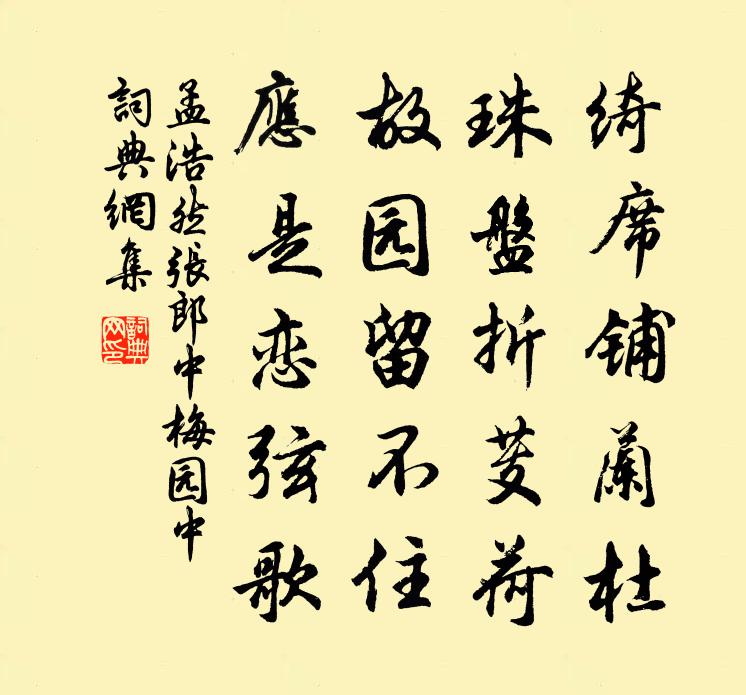 绮席铺蘭杜
珠盤折芰荷
故园留不住
應是恋弦歌
孟浩然張郎中梅园中
詞典網集
詞典
网印